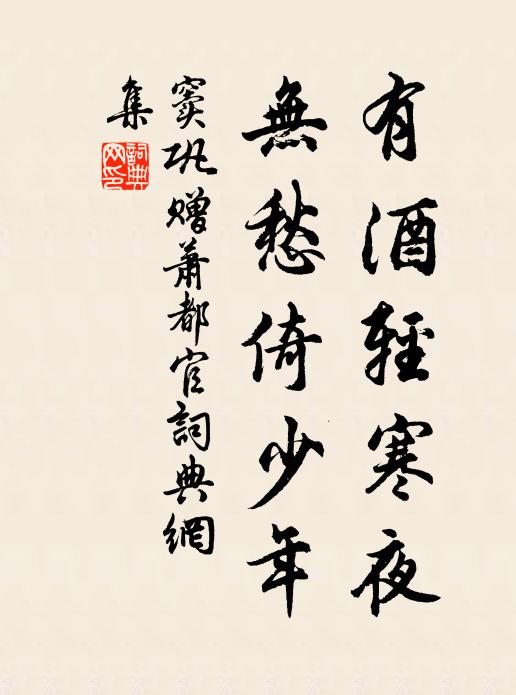 有酒輕寒夜
無愁倚少年
竇巩贈蕭都官詞典網
集
詞典網印